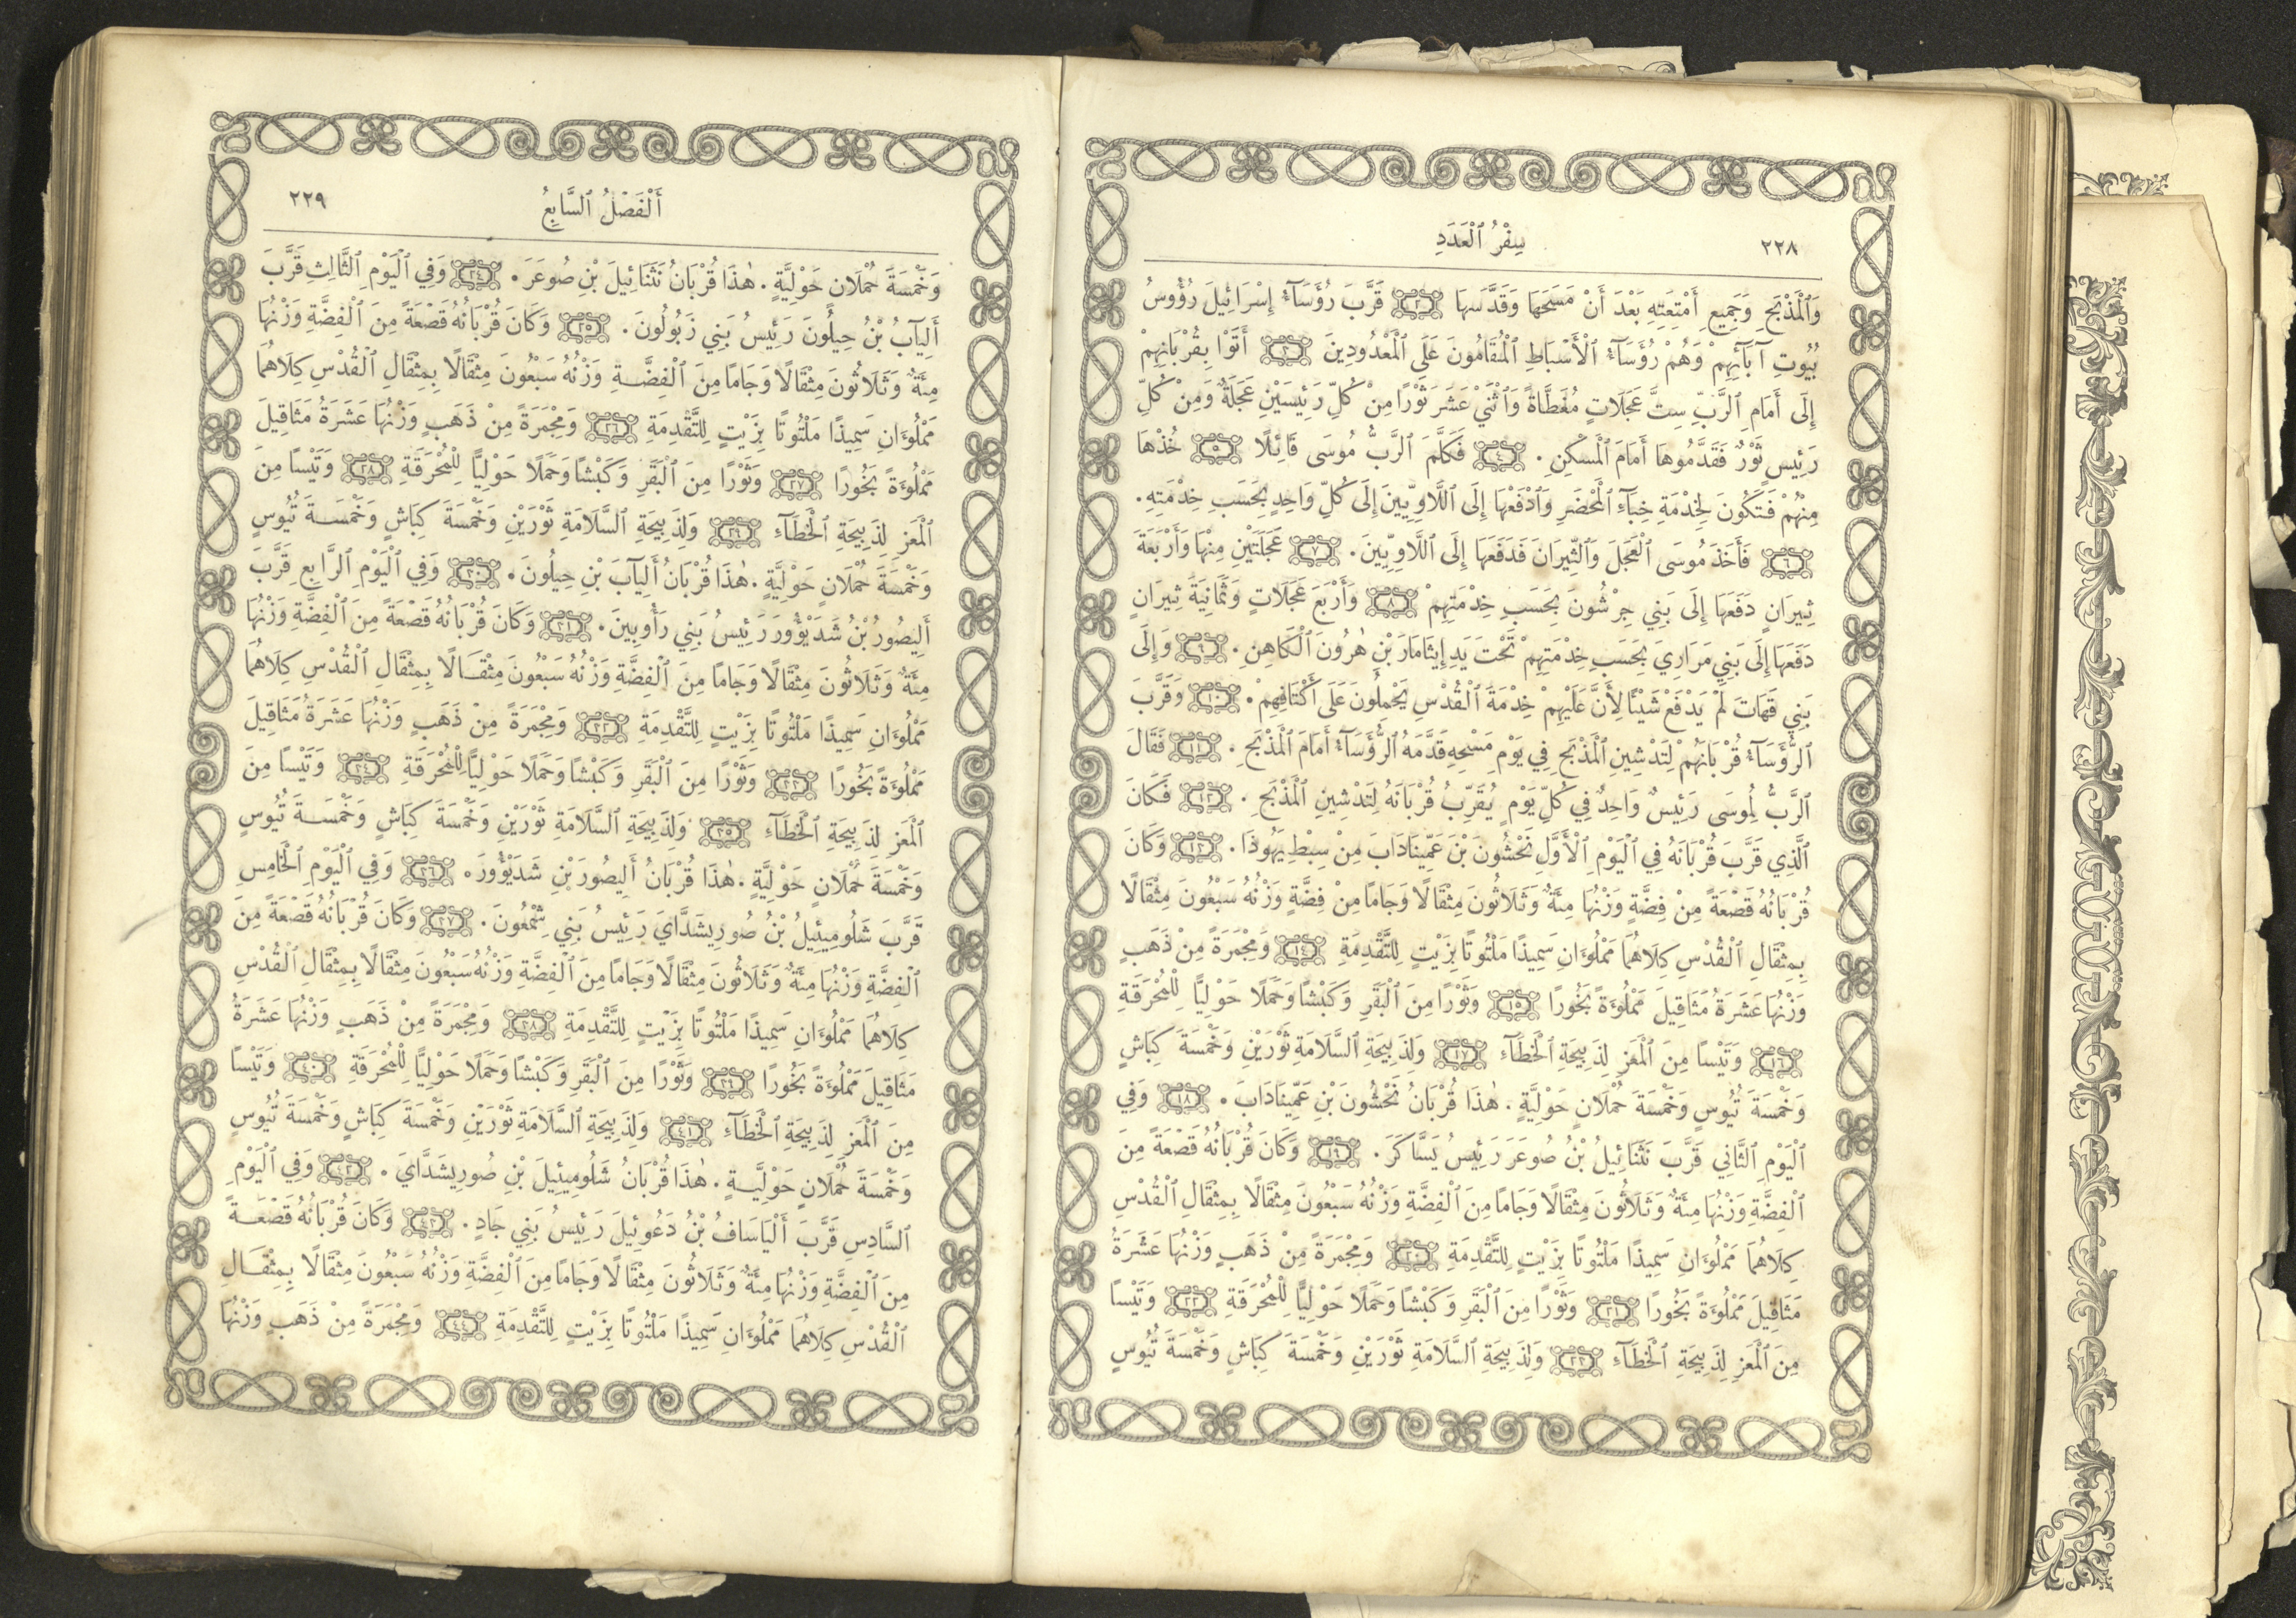 ٢٢٨
سِفْرُ ٱلْعَدَدِ
وَٱلْمَذْبَحِ وَجَمِيعِ أَمْتِعَتِهِ بَعْدَ أَنْ مَسَحَهَا وَقَدَّسَهَا ٢ قَرَّبَ رُؤَسَآءُ إِسْرَائِيلَ رُؤُوسُ
بُيُوتِ آبَآئِهِمْ وَهُمْ رُؤَسَآءُ ٱلْأَسْبَاطِ ٱلْمُقَامُونَ عَلَى ٱلْمَعْدُودِينَ ٣ أَتَوْا بِقُرْبَانِهِمْ
إِلَى أَمَامِ ٱلرَّبِّ سِتَّ عَجَلَاتٍ مُغَطَّاةً وَٱثْنَيْ عَشَرَ ثَوْرًا مِنْ كُلِّ رَئِيسَيْنِ عَجَلَةً وَمِنْ كُلِّ
رَئِيسٍ ثَوْرٌ فَقَدَّمُوهَا أَمَامَ ٱلْمَسْكِنِ. ٤ فَكَلَّمَ ٱلرَّبُّ مُوسَى قَائِلًا ٥ خُذْهَا
مِنْهُمْ فَتَكُونَ لِخِدْمَةِ خِبَآءِ ٱلْمَحْضَرِ وَٱدْفَعْهَا إِلَى ٱللَّاوِيِّينَ إِلَى كُلِّ وَاحِدٍ بِحَسَبِ خِدْمَتِهِ.
٦ فَأَخَذَ مُوسَى ٱلْعَجَلَ وَٱلثِّيرَانَ فَدَفَعَهَا إِلَى ٱللَّاوِيِّينَ. ٧ عَجَلَتَيْنِ مِنْهَا وَأَرْبَعَةَ
ثِيرَانٍ دَفَعَهَا إِلَى بَنِي جِرْشُونَ بِحَسَبِ خِدْمَتِهِمْ ٨ وَأَرْبَعَ عَجَلَاتٍ وَثَمَانِيَةَ ثِيرَانٍ
دَفَعَهَا إِلَى بَنِي مَرَارِيَ بِحَسَبِ خِدْمَتِهِمْ تَحْتَ يَدِ إِيثَامَارَ بْنِ هٰرُونَ ٱلْكَاهِنِ. ٩ وَإِلَى
بَنِي قَهَاتَ لَمْ يَدْفَعْ شَيْئًا لِأَنَّ عَلَيْهِمْ خِدْمَةَ ٱلْقُدْسِ يَحْمِلُونَ عَلَى أَكْتَافِهِمْ. ١٠ وَقَرَّبَ
ٱلرُّؤَسَآءُ قُرْبَانَهُمْ لِتَدْشِينِ ٱلْمَذْبَحِ فِي يَوْمِ مَسْحِهِ قَدَّمَهُ ٱلرُّؤَسَآءُ أَمَامَ ٱلْمَذْبَحِ. ١١ فَقَالَ
ٱلرَّبُّ لِمُوسَى رَئِيسٌ وَاحِدٌ فِي كُلِّ يَوْمٍ يُقَرِّبُ قُرْبَانَهُ لِتَدْشِينِ ٱلْمَذْبَحِ. ١٢ فَكَانَ
ٱلَّذِي قَرَّبَ قُرْبَانَهُ فِي ٱلْيَوْمِ ٱلْأَوَّلِ نَحْشُونَ بْنَ عَمِّينَادَابَ مِنْ سِبْطِ يَهُوذَا. ١٣ وَكَانَ
قُرْبَانُهُ قَصْعَةً مِنْ فِضَّةٍ وَزْنُهَا مِئَةٌ وَثَلَاثُونَ مِثْقَالًا وَجَامًا مِنْ فِضَّةٍ وَزْنُهُ سَبْعُونَ مِثْقَالًا
بِمِثْقَالِ ٱلْقُدْسِ كِلَاهُمَا مَمْلُوءَانِ سَمِيذًا مَلْتُوتًا بِزَيْتٍ لِلتَّقْدِمَةِ ١٤ وَمِجْمَرَةً مِنْ ذَهَبٍ
وَزْنُهَا عَشَرَةُ مَثَاقِيلَ مَمْلُوءَةً بَخُورًا ١٥ وَثَوْرًا مِنَ ٱلْبَقَرِ وَكَبْشًا وَحَمَلًا حَوْلِيًّا لِلْمُحْرَقَةِ
١٦ وَتَيْسًا مِنَ ٱلْمَعَزِ لِذَبِيحَةِ ٱلْخَطَآءِ ١٧ وَلِذَبِيحَةِ ٱلسَّلَامَةِ ثَوْرَيْنِ وَخَمْسَةَ كِبَاشٍ
وَخَمْسَةَ تُيُوسٍ وَخَمْسَةَ حُمْلَانٍ حَوْلِيَّةٍ. هٰذَا قُرْبَانُ نَحْشُونَ بْنِ عَمِّينَادَابَ. ١٨ وَفِي
ٱلْيَوْمِ ٱلثَّانِي قَرَّبَ نَثَنَائِيلُ بْنُ صُوعَرَ رَئِيسُ يَسَّاكَرَ. ١٩ وَكَانَ قُرْبَانُهُ قَصْعَةً مِنَ
ٱلْفِضَّةِ وَزْنُهَا مِئَةٌ وَثَلَاثُونَ مِثْقَالًا وَجَامًا مِنَ ٱلْفِضَّةِ وَزْنُهُ سَبْعُونَ مِثْقَالًا بِمِثْقَالِ ٱلْقُدْسِ
كِلَاهُمَا مَمْلُوءَانِ سَمِيذًا مَلْتُوتًا بِزَيْتٍ لِلتَّقْدِمَةِ ٢٠ وَمِجْمَرَةً مِنْ ذَهَبٍ وَزْنُهَا عَشَرَةُ
مَثَاقِيلَ مَمْلُوءَةً بَخُورًا ٢١ وَثَوْرًا مِنَ ٱلْبَقَرِ وَكَبْشًا وَحَمَلًا حَوْلِيًّا لِلْمُحْرَقَةِ ٢٢ وَتَيْسًا
مِنَ ٱلْمَعَزِ لِذَبِيحَةِ ٱلْخَطَآءِ ٢٣ وَلِذَبِيحَةِ ٱلسَّلَامَةِ ثَوْرَيْنِ وَخَمْسَةَ كِبَاشٍ وَخَمْسَةَ تُيُوسٍ
أَلْفَصْلُ ٱلسَّابِعُ
٢٢٩
وَخَمْسَةَ حُمْلَانٍ حَوْلِيَّةٍ. هٰذَا قُرْبَانُ نَثَنَائِيلَ بْنِ صُوعَرَ. ٢٤ وَفِي ٱلْيَوْمِ ٱلثَّالِثِ قَرَّبَ
أَلِيآبُ بْنُ حِيلُونَ رَئِيسُ بَنِي زَبُولُونَ. ٢٥ وَكَانَ قُرْبَانُهُ قَصْعَةً مِنَ ٱلْفِضَّةِ وَزْنُهَا
مِئَةٌ وَثَلَاثُونَ مِثْقَالًا وَجَامًا مِنَ ٱلْفِضَّةِ وَزْنُهُ سَبْعُونَ مِثْقَالًا بِمِثْقَالِ ٱلْقُدْسِ كِلَاهُمَا
مَمْلُوءَانِ سَمِيذًا مَلْتُوتًا بِزَيْتٍ لِلتَّقْدِمَةِ ٢٦ وَمِجْمَرَةً مِنْ ذَهَبٍ وَزْنُهَا عَشَرَةُ مَثَاقِيلَ
مَمْلُوءَةً بَخُورًا ٢٧ وَثَوْرًا مِنَ ٱلْبَقَرِ وَكَبْشًا وَحَمَلًا حَوْلِيًّا لِلْمُحْرَقَةِ ٢٨ وَتَيْسًا مِنَ
ٱلْمَعَزِ لِذَبِيحَةِ ٱلْخَطَآءِ ٢٩ وَلِذَبِيحَةِ ٱلسَّلَامَةِ ثَوْرَيْنِ وَخَمْسَةَ كِبَاشٍ وَخَمْسَةَ تُيُوسٍ
وَخَمْسَةَ حُمْلَانٍ حَوْلِيَّةٍ. هٰذَا قُرْبَانُ أَلِيآبَ بْنِ حِيلُونَ. ٣٠ وَفِي ٱلْيَوْمِ ٱلرَّابِعِ قَرَّبَ
أَلِيصُورُ بْنُ شَدَيْؤُورَ رَئِيسُ بَنِي رَأُوبِينَ. ٣١ وَكَانَ قُرْبَانُهُ قَصْعَةً مِنَ ٱلْفِضَّةِ وَزْنُهَا
مِئَةٌ وَثَلَاثُونَ مِثْقَالًا وَجَامًا مِنَ ٱلْفِضَّةِ وَزْنُهُ سَبْعُونَ مِثْقَالًا بِمِثْقَالِ ٱلْقُدْسِ كِلَاهُمَا
مَمْلُوءَانِ سَمِيذًا مَلْتُوتًا بِزَيْتٍ لِلتَّقْدِمَةِ ٣٢ وَمِجْمَرَةً مِنْ ذَهَبٍ وَزْنُهَا عَشَرَةُ مَثَاقِيلَ
مَمْلُوءَةً بَخُورًا ٣٣ وَثَوْرًا مِنَ ٱلْبَقَرِ وَكَبْشًا وَحَمَلًا حَوْلِيًّا لِلْمُحْرَقَةِ ٣٤ وَتَيْسًا مِنَ
ٱلْمَعَزِ لِذَبِيحَةِ ٱلْخَطَآءِ ٣٥ وَلِذَبِيحَةِ ٱلسَّلَامَةِ ثَوْرَيْنِ وَخَمْسَةَ كِبَاشٍ وَخَمْسَةَ تُيُوسٍ
وَخَمْسَةَ حُمْلَانٍ حَوْلِيَّةٍ. هٰذَا قُرْبَانُ أَلِيصُورَ بْنِ شَدَيْؤُورَ. ٣٦ وَفِي ٱلْيَوْمِ ٱلْخَامِسِ
قَرَّبَ شَلُومِيئِيلُ بْنُ صُورِيشَدَّايَ رَئِيسُ بَنِي شِمْعُونَ. ٣٧ وَكَانَ قُرْبَانُهُ قَصْعَةً مِنَ
ٱلْفِضَّةِ وَزْنُهَا مِئَةٌ وَثَلَاثُونَ مِثْقَالًا وَجَامًا مِنَ ٱلْفِضَّةِ وَزْنُهُ سَبْعُونَ مِثْقَالًا بِمِثْقَالِ ٱلْقُدْسِ
كِلَاهُمَا مَمْلُوءَانِ سَمِيذًا مَلْتُوتًا بِزَيْتٍ لِلتَّقْدِمَةِ ٣٨ وَمِجْمَرَةً مِنْ ذَهَبٍ وَزْنُهَا عَشَرَةُ
مَثَاقِيلَ مَمْلُوءَةً بَخُورًا ٣٩ وَثَوْرًا مِنَ ٱلْبَقَرِ وَكَبْشًا وَحَمَلًا حَوْلِيًّا لِلْمُحْرَقَةِ ٤٠ وَتَيْسًا
مِنَ ٱلْمَعَزِ لِذَبِيحَةِ ٱلْخَطَآءِ ٤١ وَلِذَبِيحَةِ ٱلسَّلَامَةِ ثَوْرَيْنِ وَخَمْسَةَ كِبَاشٍ وَخَمْسَةَ تُيُوسٍ
وَخَمْسَةَ حُمْلَانٍ حَوْلِيَّةٍ. هٰذَا قُرْبَانُ شَلُومِيئِيلَ بْنِ صُورِيشَدَّايَ. ٤٢ وَفِي ٱلْيَوْمِ
ٱلسَّادِسِ قَرَّبَ أَلْيَاسَافُ بْنُ دَعُوئِيلَ رَئِيسُ بَنِي جَادٍ. ٤٣ وَكَانَ قُرْبَانُهُ قَصْعَةً
مِنَ ٱلْفِضَّةِ وَزْنُهَا مِئَةٌ وَثَلَاثُونَ مِثْقَالًا وَجَامًا مِنَ ٱلْفِضَّةِ وَزْنُهُ سَبْعُونَ مِثْقَالًا بِمِثْقَالِ
ٱلْقُدْسِ كِلَاهُمَا مَمْلُوءَانِ سَمِيذًا مَلْتُوتًا بِزَيْتٍ لِلتَّقْدِمَةِ ٤٤ وَمِجْمَرَةً مِنْ ذَهَبٍ وَزْنُهَا